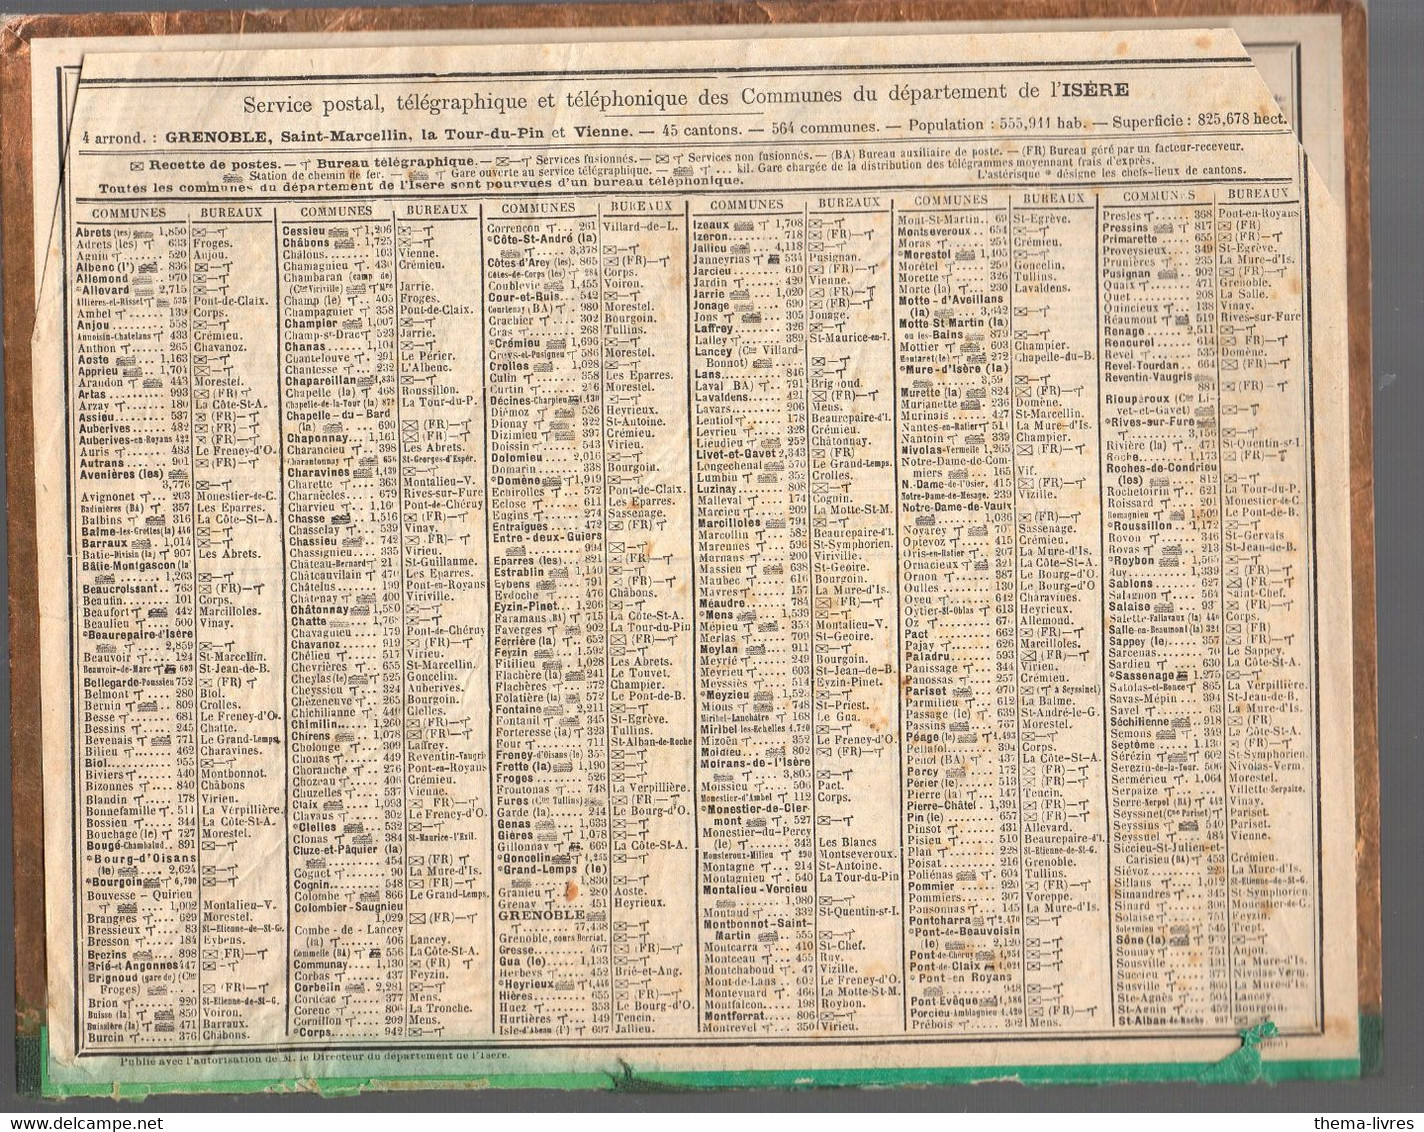 Service postal, télégraphique et téléphonique des Communes du département de l'ISÈRE
4 arrond. : GRENOBLE, Saint-Marcellin, la Tour-du-Pin et Vienne. — 45 cantons. — 564 communes. — Population : 555,911 hab. — Superficie : 825,678 hect.
Recette de postes. — Bureau télégraphique. — Services fusionnés. — Services non fusionnés. — (BA) Bureau auxiliaire de poste. — (FR) Bureau géré par un facteur-receveur.
Station de chemin de fer. — Gare ouverte au service télégraphique. — ... kil. Gare chargée de la distribution des télégrammes moyennant frais d'exprès.
Toutes les communes du département de l'Isère sont pourvues d'un bureau téléphonique. L'astérisque * désigne les chefs-lieux de cantons.
COMMUNES BUREAUX
Abrets (les) 1,850
Adrets (les) 633 Froges.
Agnin 520 Anjou.
Albenc (l') 836
Allemond 970
*Allevard 2,715
Allières-et-Risset 535 Pont-de-Claix.
Ambel 139 Corps.
Anjou 558
Annoisin-Chatelans 433 Crémieu.
Anthon 265 Chavanoz.
Aoste 1,163
Apprieu 1,704
Arandon 443 Morestel.
Artas 993 (FR)
Arzay 180 La Côte-S-A.
Assieu 537 (FR)
Auberives 482 (FR)
Auberives-en-Royans 422 (FR)
Auris 483 Le Freney-d'O.
Autrans 901 (FR)
Avenières (les)
3,776
Avignonet 203 Monestier-de-C.
Badinières (BA) 357 Les Eparres.
Balbins 316 La Côte-St-A.
Balme-les-Grottes (la) 446
Barraux 1,014
Batie-Divisin (la) 907 Les Abrets.
Bâtie-Montgascon (la
1,263
Beaucroissant 763 (FR)
Beaufin 101 Corps.
Beaufort 442 Marcilloles.
Beaulieu 500 Vinay.
*Beaurepaire-d'Isère
2,859
Beauvoir 124 St-Marcellin.
Beauvoir-de-Marc 693 St-Jean-de-B.
Bellegarde-Poussieu 752 (FR)
Belmont 280 Biol.
Bernin 809 Crolles.
Besse 681 Le Freney-d'O.
Bessins 245 Chatte.
Bevenais 771 Le Grand-Lemps.
Bilieu 462 Charavines.
Biol 955
Biviers 440 Montbonnot.
Bizonnes 840 Châbons
Blandin 178 Virieu.
Bonnefamille 511 La Verpillière.
Bossieu 344 La Côte-S-A.
Bouchage (le) 727 Morestel.
Bougé-Chambalud 891
*Bourg-d'Oisans
(le) 2,624
*Bourgoin 6,790
Bouvesse-Quirieu
1,002 Montalieu-V.
Brangues 629 Morestel.
Bressieux 83 St-Etienne-de-St-G.
Bresson 184 Eybens.
Brezins 898 (FR)
Brié-et-Angonnes 447
Brignoud (gare de) (Cne
Froges)
Brion 220 St-Etienne-de-St-G.
Buisse (la) 850 Voiron.
Buissière (la) 471 Barraux.
Burcin 376 Châbons.
COMMUNES BUREAUX
Cessieu 1,206
Châbons 1,725
Châlons 103 Vienne.
Chamagnieu 430 Crémieu.
Chambaran (camp de)
(Cne Viriville) Jarrie.
Champ (le) 405 Froges.
Champagnier 358 Pont-de-Claix.
Champier 1,007
Champ-sr-Drac 523 Jarrie.
Chanas 1,104
Chantelouve 291 Le Périer.
Chantesse 232 L'Albenc.
Chapareillan 1,835
Chapelle (la) 468 Roussillon.
Chapelle-de-la-Tour (la) 872 La Tour-du-P.
Chapelle-du-Bard
(la) 690 (FR)
Chaponnay 1,161 (FR)
Charancieu 398 Les Abrets.
Charantonnay 656 St-Georges-d'Espér.
Charavines 1,139
Charette 363 Montalieu-V.
Charnècles 679 Rives-sur-Fure
Charvieu 1,161 Pont-de-Chéruy
Chasse 1,516 (FR)
Chasselay 539 Vinay.
Chassieu 742 (FR)
Chassignieu 335 Virieu.
Château-Bernard 21 St-Guillaume.
Châteauvilain 470 Les Eparres.
Châtelus 199 Pont-en-Royans
Châtenay 400 Viriville.
Châtonnay 1,580
Chatte 1,768
Chavagneu 179 Pont-de-Chéruy
Chavanoz 919 (FR)
Chélieu 517 Virieu.
Chevrières 655 St-Marcellin.
Cheylas (le) 525 Goncelin.
Cheyssieu 324 Auberives.
Chèzeneuve 265 Bourgoin.
Chichilianne 440 Clelles.
Chimilin 1,260 (FR)
Chirens 1,078 (FR)
Cholonge 309 Laffrey.
Chonas 449 Reventin-Vaugris
Choranche 276 Pont-en-Royans
Chozeau 406 Crémieu.
Chuzelles 537 Vienne.
Claix 1,093 (FR)
Clavans 302 Le Freney-d'O.
*Clelles 532
Clonas 384 St-Maurice-l'Exil.
Cluze-et-Pâquier (la)
454 (FR)
Cognet 90 La Mure-d'Is.
Cognin 548 (FR)
Colombe 866 Le Grand-Lemps.
Colombier-Saugnieu
1,029 (FR)
Combe-de-Lancey
(la) 406 Lancey.
Commelle (BA) 556 La Côte-St-A.
Communay 1,130 (FR)
Corbas 437 Feyzin.
Corbelin 2,281
Cordéac 377 Mens.
Corenc 806 La Tronche.
Cornillon 209 Mens.
*Corps 942
COMMUNES BUREAUX
Corrençon 261 Villard-de-L.
*Côte-St-André (la)
3,378
Côtes-d'Arey (les) 865
Côtes-de-Corps (les) 284 Corps.
Coublevie 1,455 Voiron.
Cour-et-Buis 542
Courtenay (BA) 980 Morestel.
Crachier 302 Bourgoin.
Cras 268 Tullins.
*Crémieu 1,696
Creys-et-Pusigneu 586 Morestel.
Crolles 1,028
Culin 358 Les Eparres.
Curtin 216 Morestel.
Décines-Charpieu 1,430
Diémoz 526 Heyrieux.
Dionay 322 St-Antoine.
Dizimieu 397 Crémieu.
Doissin 543 Virieu.
Dolomieu 2,016
Domarin 338 Bourgoin.
*Domène 1,919
Echirolles 572 Pont-de-Claix.
Eclose 611 Les Eparres.
Engins 274 Sassenage.
Entraigues 472 (FR)
Entre-deux-Guiers
994
Eparres (les) 821 (FR)
Estrablin 1,140
Eybens 791 (FR)
Eydoche 476 Châbons.
Eyzin-Pinet 1,206
Faramans (BA) 715 La Côte-St-A.
Faverges 902 La Tour-du-Pin
Ferrière (la) 652 (FR)
Feyzin 1,592
Fitilieu 1,028 Les Abrets.
Flachère (la) 241 Le Touvet.
Flachères 241 Champier.
Flolatière (la) 572 Le Pont-de-B.
Fontaine 2,211
Fontanil 345 St-Egrève.
Forteresse (la) 323 Tullins.
Four 711 St-Alban-de-Roche
Freney-d'Oisans (le) 355
Frette (la) 1,190
Froges 526
Frontonas 748 La Verpillière.
Fures (Cne Tullins)
Garde (la) 244 Le Bourg-d'O.
Genas 1,633
Gières 1,078
Gillonnay 669 La Côte-St-A.
*Goncelin 1,255
*Grand-Lemps (le)
1,830
Granieu 280 Aoste.
Grenay 451 Heyrieux.
GRENOBLE
77,438
Grenoble, cours Berriat.
Gresse 467 (FR)
Gua (le) 1,133
Herbeys 452 Brié-et-Ang.
*Heyrieux 1,446
Hières 655 (FR)
Huez 353 Le Bourg-d'O.
Hurtières 149 Tencin.
Isle-d'Abeau (l') 697 Jallieu.
COMMUNES BUREAUX
Izeaux 1,708
Izeron 718 (FR)
Jallieu 4,118
Janneyrias 534 Pusignan.
Jarcieu 610 (FR)
Jardin 420 Vienne.
Jarrie 1,020 (FR)
Jonage 690 (FR)
Jons 305 Jonage.
Laffrey 326
Lalley 389 St-Maurice-en-T.
Lancey (Cne Villard-
Bonnot)
Lans 846
Laval (BA) 791 Brignoud.
Lavaldens 421 (FR)
Lavars 206 Mens.
Lentiol 178 Beaurepaire-d'I.
Levrieu 328 Crémieu.
Lieudieu 252 Châtonnay.
Livet-et-Gavet 2,343
Longechenal 570 Le Grand-Lemps.
Lumbin 352 Crolles.
Luzinay 808
Malleval 174 Cognin.
Marcieu 240 La Motte-St-M.
Marcilloles 794
Marcollin 582 Beaurepaire-d'I.
Marennes 596 St-Symphorien.
Marnans 200 Viriville.
Massieu 638 St-Geoire.
Maubec 616 Bourgoin.
Mayres 157 La Mure-d'Is.
Méaudre 784 (FR)
*Mens 1,539
Mépieu 353 Montalieu-V.
Merlas 709 St-Geoire.
Meylan 911
Meyrié 249 Bourgoin.
Meyrieu 603 St-Jean-de-B.
Meyssiès 514 Eyzin-Pinet.
*Meyzieu 1,523
Mions 748 St-Priest.
Miribel-Lanchâtre 168 Le Gua.
Miribel les-Echelles 1,720
Mizoën 352 Le Freney-d'O.
Moidieu 802 (FR)
Moirans-de-l'Isère
3,805
Moissieu 506 Pact.
Monestier-d'Ambel 112 Corps.
*Monestier-de-Cler-
mont 527
Monestier-du-Percy
(le) 343 Les Blancs
Monsteroux-Milieu 290 Monseveroux.
Montagne 244 St-Antoine.
Montagnieu 540 La Tour-du-Pin
Montalieu-Vercieu
1,980
Montaud 332 St-Quentin-sr-I.
Montbonnot-Saint-
Martin 555
Montcarra 410 St-Chef.
Montceau 455 Ruy.
Montchaboud 47 Vizille.
Mont-de-Lans 602 Le Freney-d'O.
Monteynard 466 La Motte-St-M.
Montfalcon 198 Roybon.
Montferrat 806
Montrevel 350 Virieu.
COMMUNES BUREAUX
Mont-St-Martin 69 St-Egrève.
Montseveroux 654
Moras 254 Crémieu.
*Morestel 1,105
Morétel 250 Goncelin.
Morette 326 Tullins.
Morte (la) 230 Lavaldens.
Motte-d'Aveillans
(la) 3,642
Motte St-Martin (la)
ou les-Bains 879
Mottier 603 Champier.
Moutaret (le) 272 Chapelle-du-B.
*Mure-d'Isère (la)
Murette (la) 824 (FR)
Murianette 236 Domène.
Murinais 427 St-Marcellin.
Nantes-en-Ratier 511 La Mure-d'Is.
Nantoin 339 Champier.
Nivolas-Vermelle 1,265
Notre-Dame-de-Com-
miers 165 Vif.
N.-Dame-de-l'Osier 415 (FR)
Notre-Dame-de-Mesage 239 Vizille.
Notre-Dame-de-Vaulx
1,036
Noyarey 707 Sassenage.
Optevoz 415 Crémieu.
Oris-en-Ratier 207 La Mure-d'Is.
Ornacieux 321 La Côte-St-A.
Ornon 387 Le Bourg-d'O.
Oulles 130 Le Bourg-d'O
Oyeu 642 Charavines.
Oytier-St-Oblas 613 Heyrieux.
Oz 67 Allemond.
Pact 662 (FR)
Pajay 626 Marcilloles.
Paladru 593 (FR)
Panissage 344 Virieu.
Panossas 257 Crémieu.
Pariset 970 (à Seyssinet)
Parmilieu 612 La Balme.
Passage (le) 639 St-André-le-G.
Passins 767 Morestel.
Péage (le) 1,493
Pellafol 394 Corps.
Penol (BA) 437 La Côte-St-A.
Percy 172 (FR)
Périer (le) 513 (FR)
Pierre (la) 147 Tencin.
Pierre-Châtel 1,391 (FR)
Pin (le) 657 (FR)
Pinsot 431 Allevard.
Pisieu 510 Beaurepaire-d'I.
Plan 228 St-Etienne-de-St-G.
Poisat 216 Grenoble.
Poliénas 604 Tullins.
Pommier 920 (FR)
Pommiers 307 Voreppe.
Ponsonnas 145 La Mure-d'Is.
Pontcharra 2,470
*Pont-de-Beauvoisin
(le) 2,120
Pont-de-Chéruy 1,954
Pont-de-Claix 1,021
*Pont-en Royans
948
Pont-Evêque 1,586
Porcieu-Amblagnieu 1,420 (FR)
Prébois 302 Mens.
COMMUNES BUREAUX
Presles 368 Pont-en-Royans
Pressins 817 (FR)
Primarette 655 (FR)
Proveysieux 349 St-Egrève.
Prunières 235 La Mure-d'Is.
Pusignan 902 (FR)
Quaix 471 Grenoble.
Quet 208 La Salle.
Quincieux 138 Vinay.
Réaumont 619 Rives-sur-Fure
Renage 2,511
Rencurel 614 (FR)
Revel 535 Domène.
Revel-Tourdan 664 (FR)
Reventin-Vaugris
881 (FR)
Rioupéroux (Cne Li-
vet-et-Gavet)
*Rives-sur-Fure
3,156
Rivière (la) 471 St-Quentin-sr-I.
Roche 1,173 (FR)
Roches-de-Condrieu
(les) 812
Rochetoirin 621 La Tour-du-P.
Roissard 201 Monestier-de-C.
Romagnieu 1,509 Le Pont-de-B.
*Roussillon 1,172
Rovon 346 St-Gervais
Royas 213 St-Jean-de-B.
*Roybon 1,565
Ruy 1,339 (FR)
Sablons 627
Salagnon 564 Saint-Chef.
Salaise (FR)
Salette-Fallavaux (la) 440 Corps.
Salle-en-Beaumont (la) 321 (FR)
Sappey (le) 357 (FR)
Sarcenas 70 Le Sappey.
Sardieu 630 La Côte-St-A.
*Sassenage 1,275
Satolas-et-Bonce 865 La Verpillière.
Savas-Mépin 394 St-Jean-de-B.
Savel 63 La Mure-d'Is.
Séchilienne 918 (FR)
Semons 349 La Côte-St-A.
Septème 1,130 (FR)
Sérézin 602 St-Symphorien.
Serezin-de-la-Tour 506 Nivolas-Verm.
Sermérieu 1,064 Morestel.
Serpaize Villette-Serpaize.
Serre-Nerpol (BA) 442 Vinay.
Seyssinet (Cne Pariset) Pariset.
Seyssins 540 Pariset.
Seyssuel 484 Vienne.
Siccieu-St-Julien-et-
Carisieu (BA) 453 Crémieu.
Siévoz 223 La Mure-d'Is.
Sillans 1,012 St-Etienne-de-St-G.
Simandres 345 St-Symphorien.
Sinard 306 Monestier-de-C.
Solaise 751 Feyzin.
Soleymieu 545 Trept.
Sône (la) 972
Sonnay 751 Anjou.
Sousville 131 La Mure-d'Is.
Succieu 377 Nivolas-Verm.
Susville 860 La Mure-d'Is.
Ste-Agnès 504 Lancey.
St-Agnin 452 Bourgoin.
St-Alban-de-Roche 997
Publié avec l'autorisation de M. le Directeur du département de l'Isère.
thema-livres